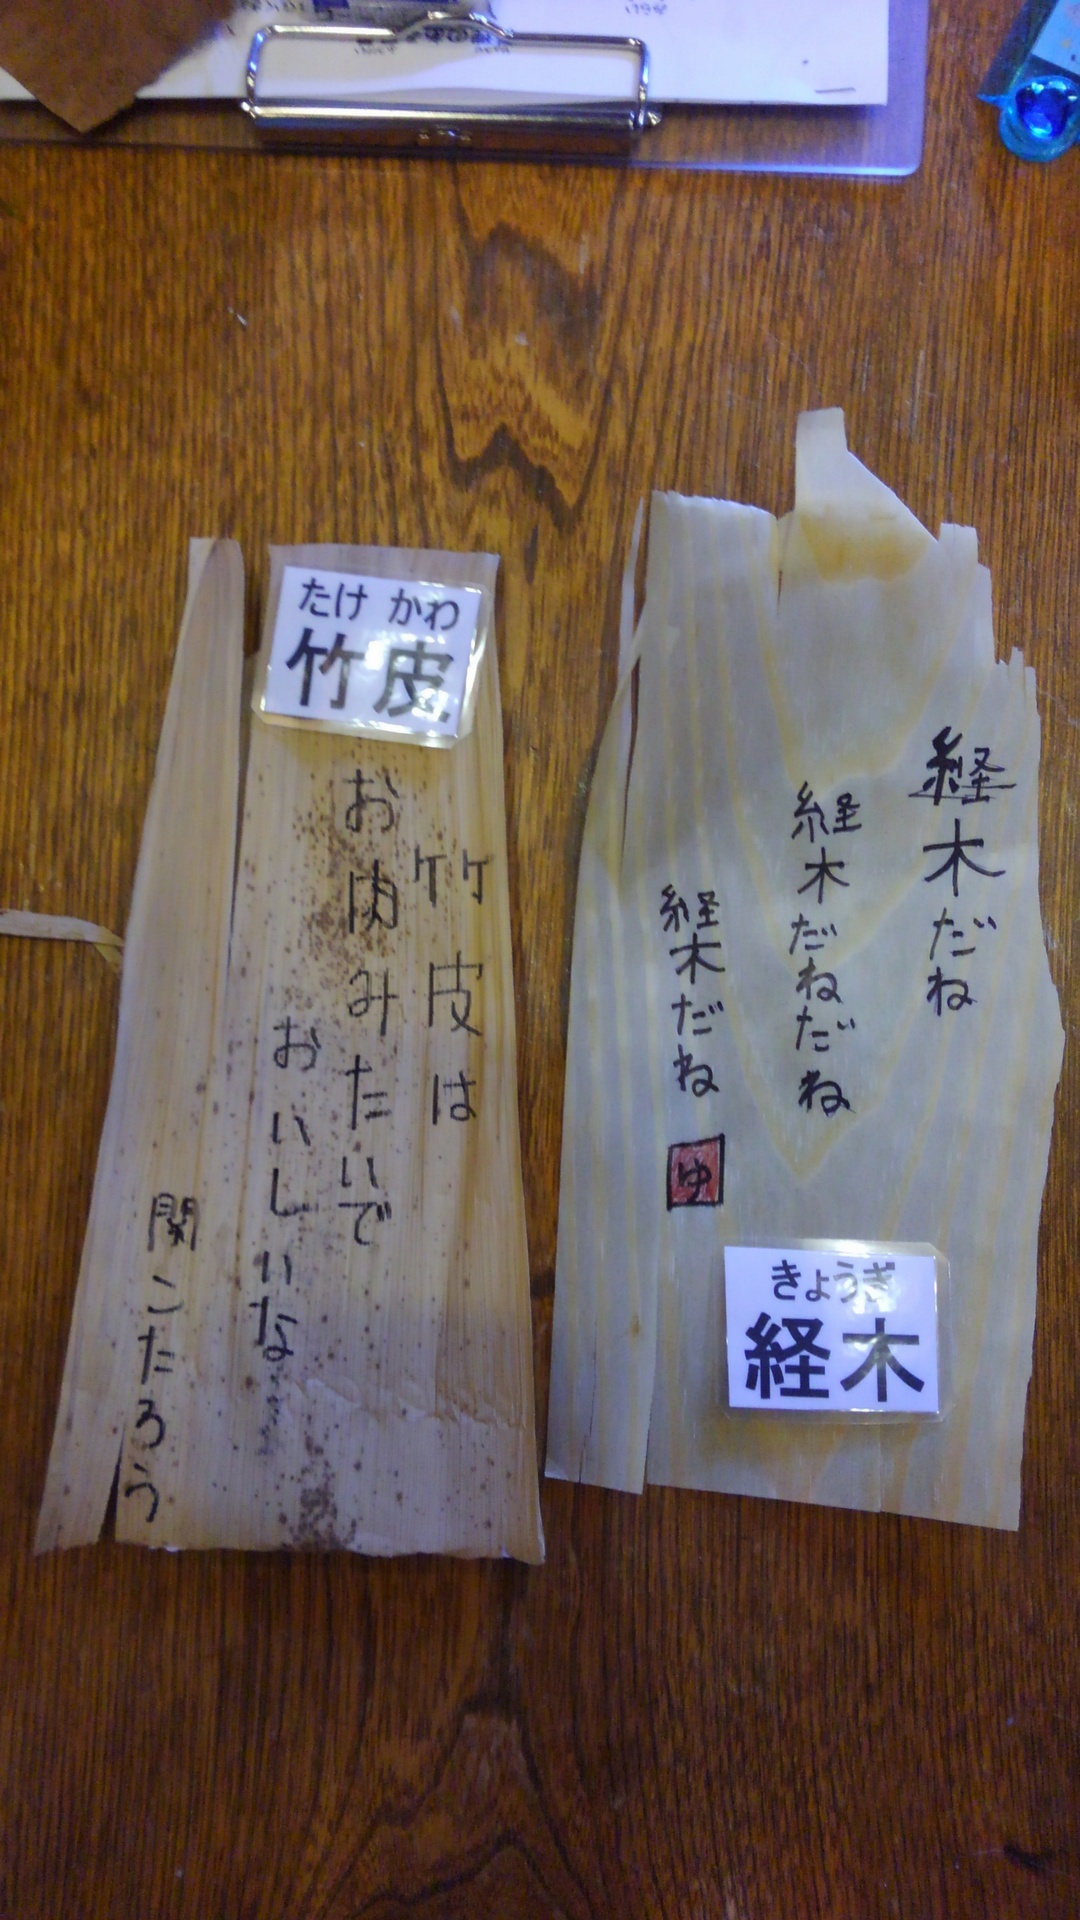 たけ かわ
竹皮
竹皮は
お肉みたいで
おいしいな
関こたろう
経木だね
経木だねだね
経木だね
ゆ
きょうぎ
経木